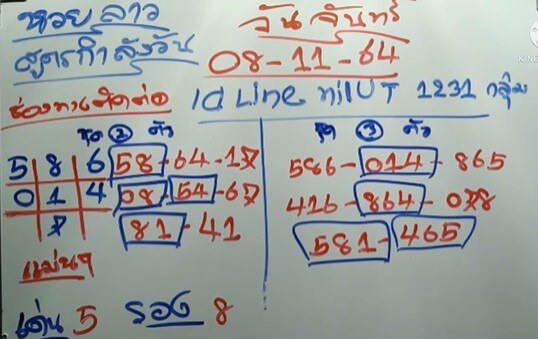 หวย ลาว วันจันทร์
สูตรกำลังวัน 08-11-64
ช่องทางติดต่อ Id Line
1231 กลุ่ม
ชุด ② ตัว
ชุด ③ ตัว
5 8 6 58-64-17
586-014-865
0 1 4 08-54-67
416-864-078
7 81-41
581-465
แม่นๆ
เด่น 5 รอง 8